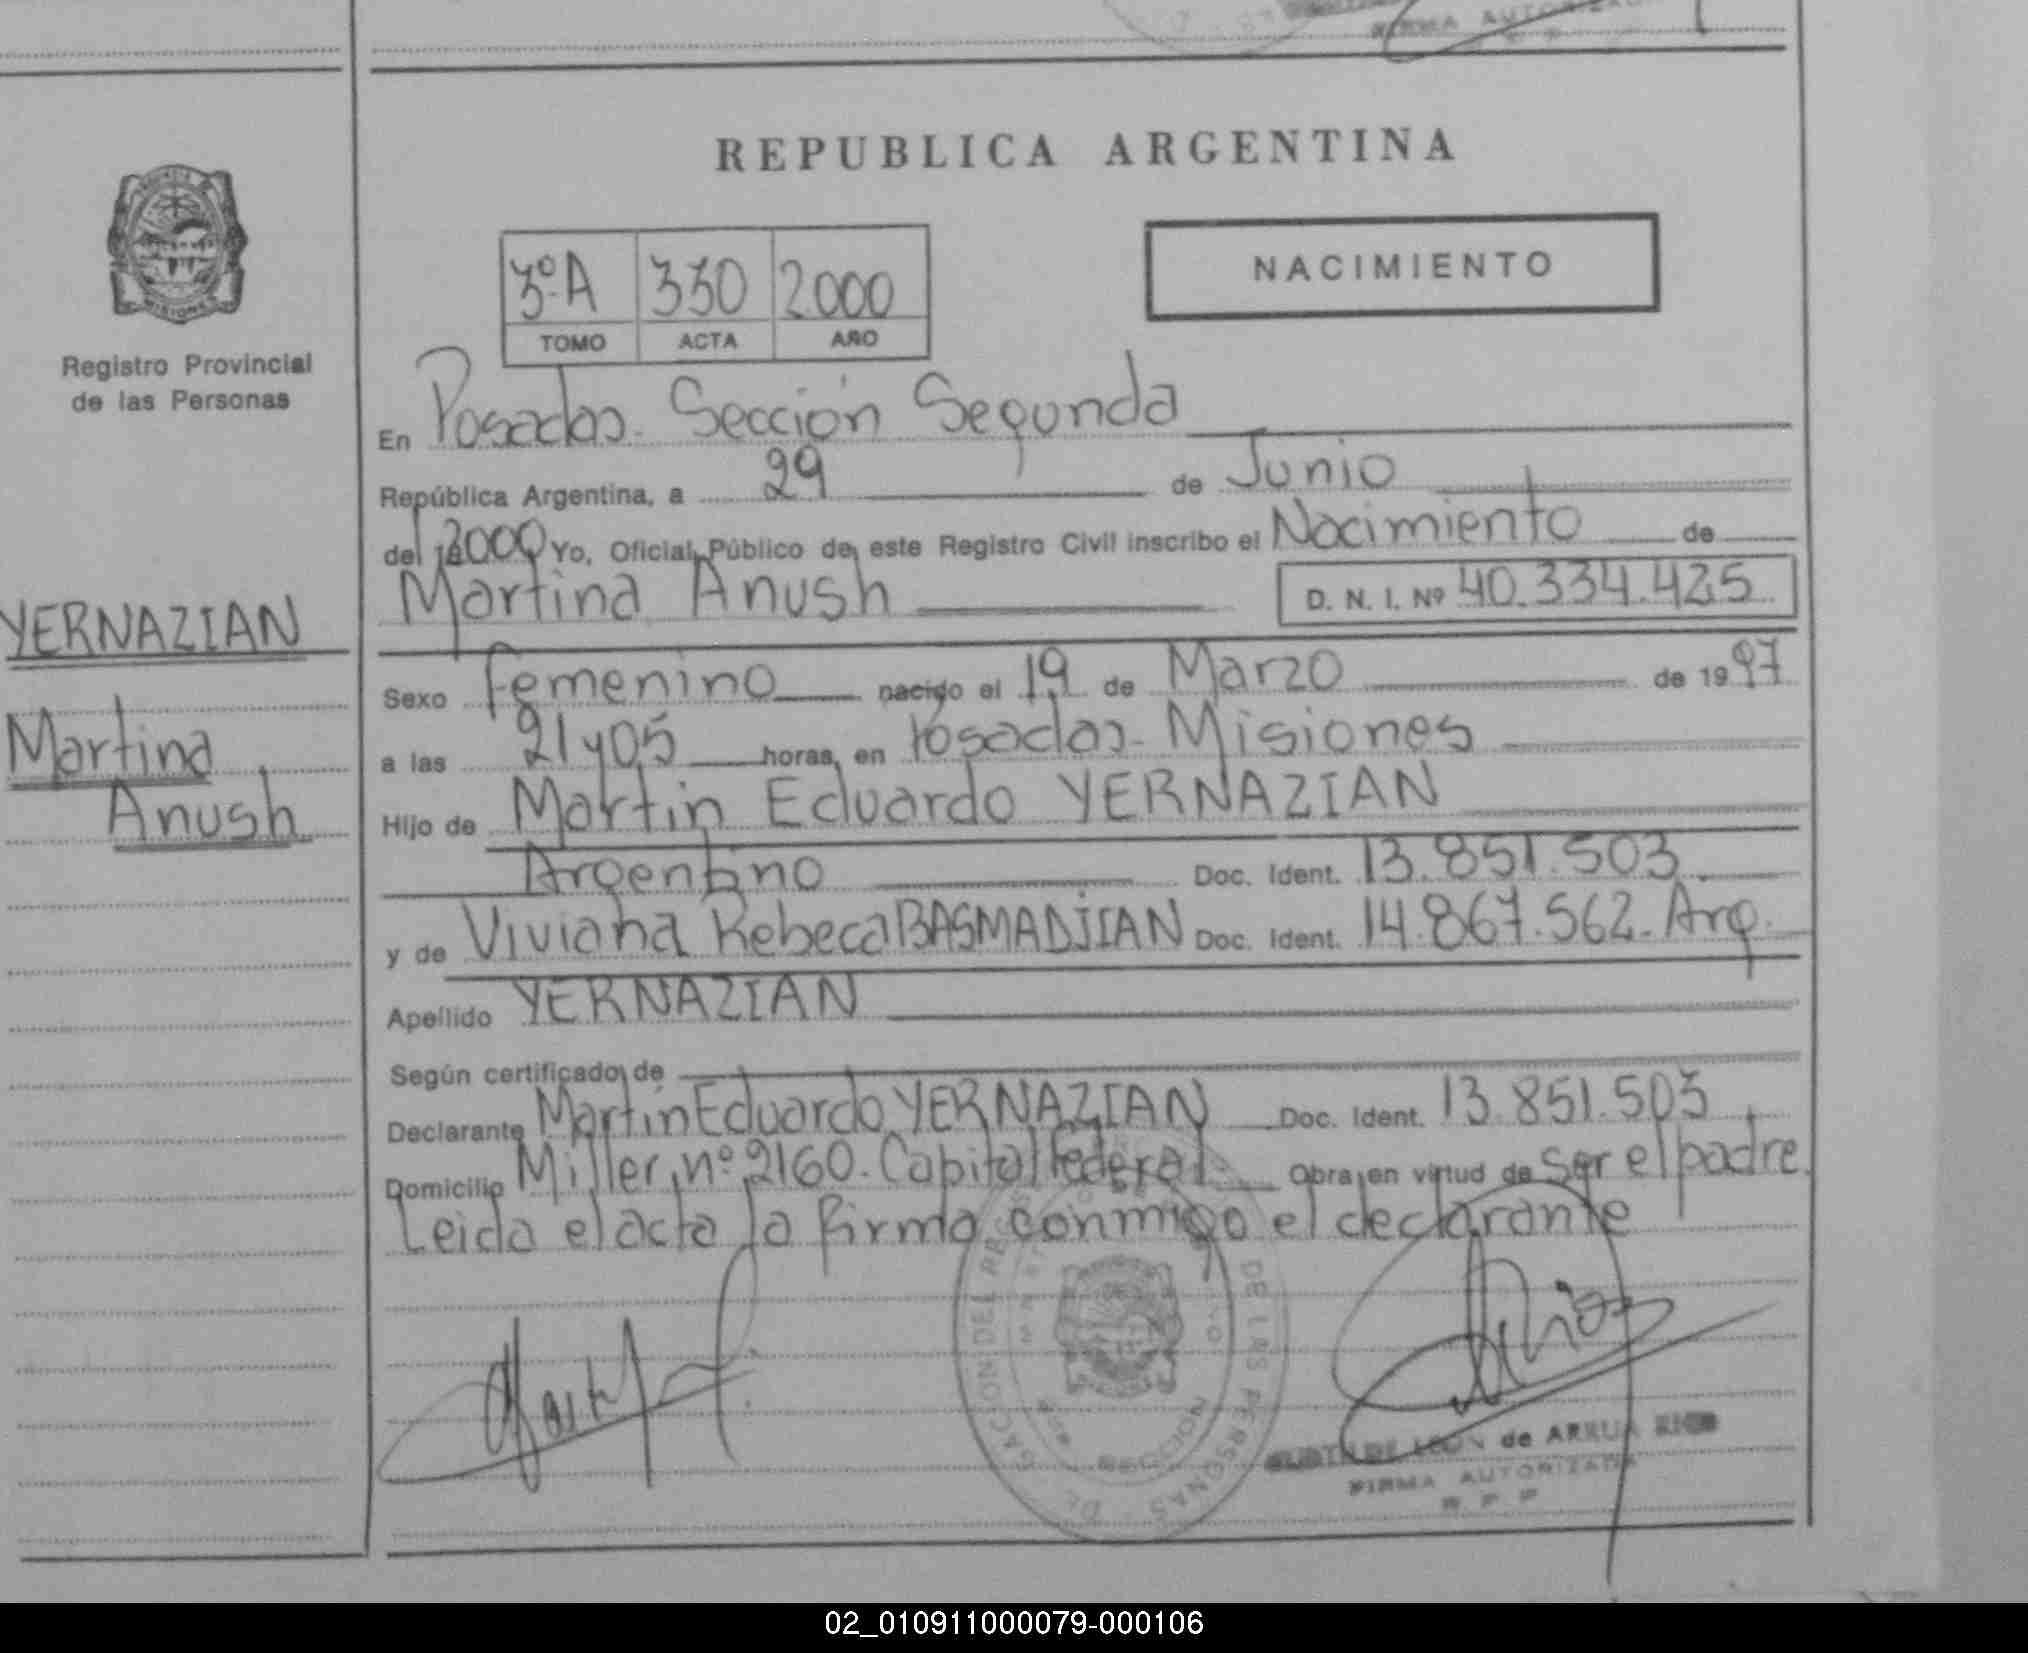 REPUBLICA ARGENTINA
NACIMIENTO
3º A 330 2.000
TOMO ACTA AÑO
Registro Provincial
de las Personas
YERNAZIAN
Martina
Anush
En Posadas. Sección Segunda
República Argentina, a 29 de Junio
del 2000 Yo, Oficial Público de este Registro Civil inscribo el Nacimiento de
Martina Anush D. N. I. Nº 40.334.425
Sexo femenino nacido el 19 de Marzo de 1997
a las 21 y 05 horas, en Posadas- Misiones
Hijo de Martin Eduardo YERNAZIAN
Argentino Doc. Ident. 13.851.503
y de Viviana Rebeca BASMADJIAN Doc. Ident. 14.867.562. Arg.
Apellido YERNAZIAN
Según certificado de
Declarante Martin Eduardo YERNAZIAN Doc. Ident. 13.851.503
Domicilio Miller nº 2160. Capital Federal. Obra en virtud de ser el padre.
Leida el acta la firma conmigo el declarante
DE LAS PERSONAS
de LEON de ARRUA
FIRMA AUTORIZADA
02_010911000079-000106